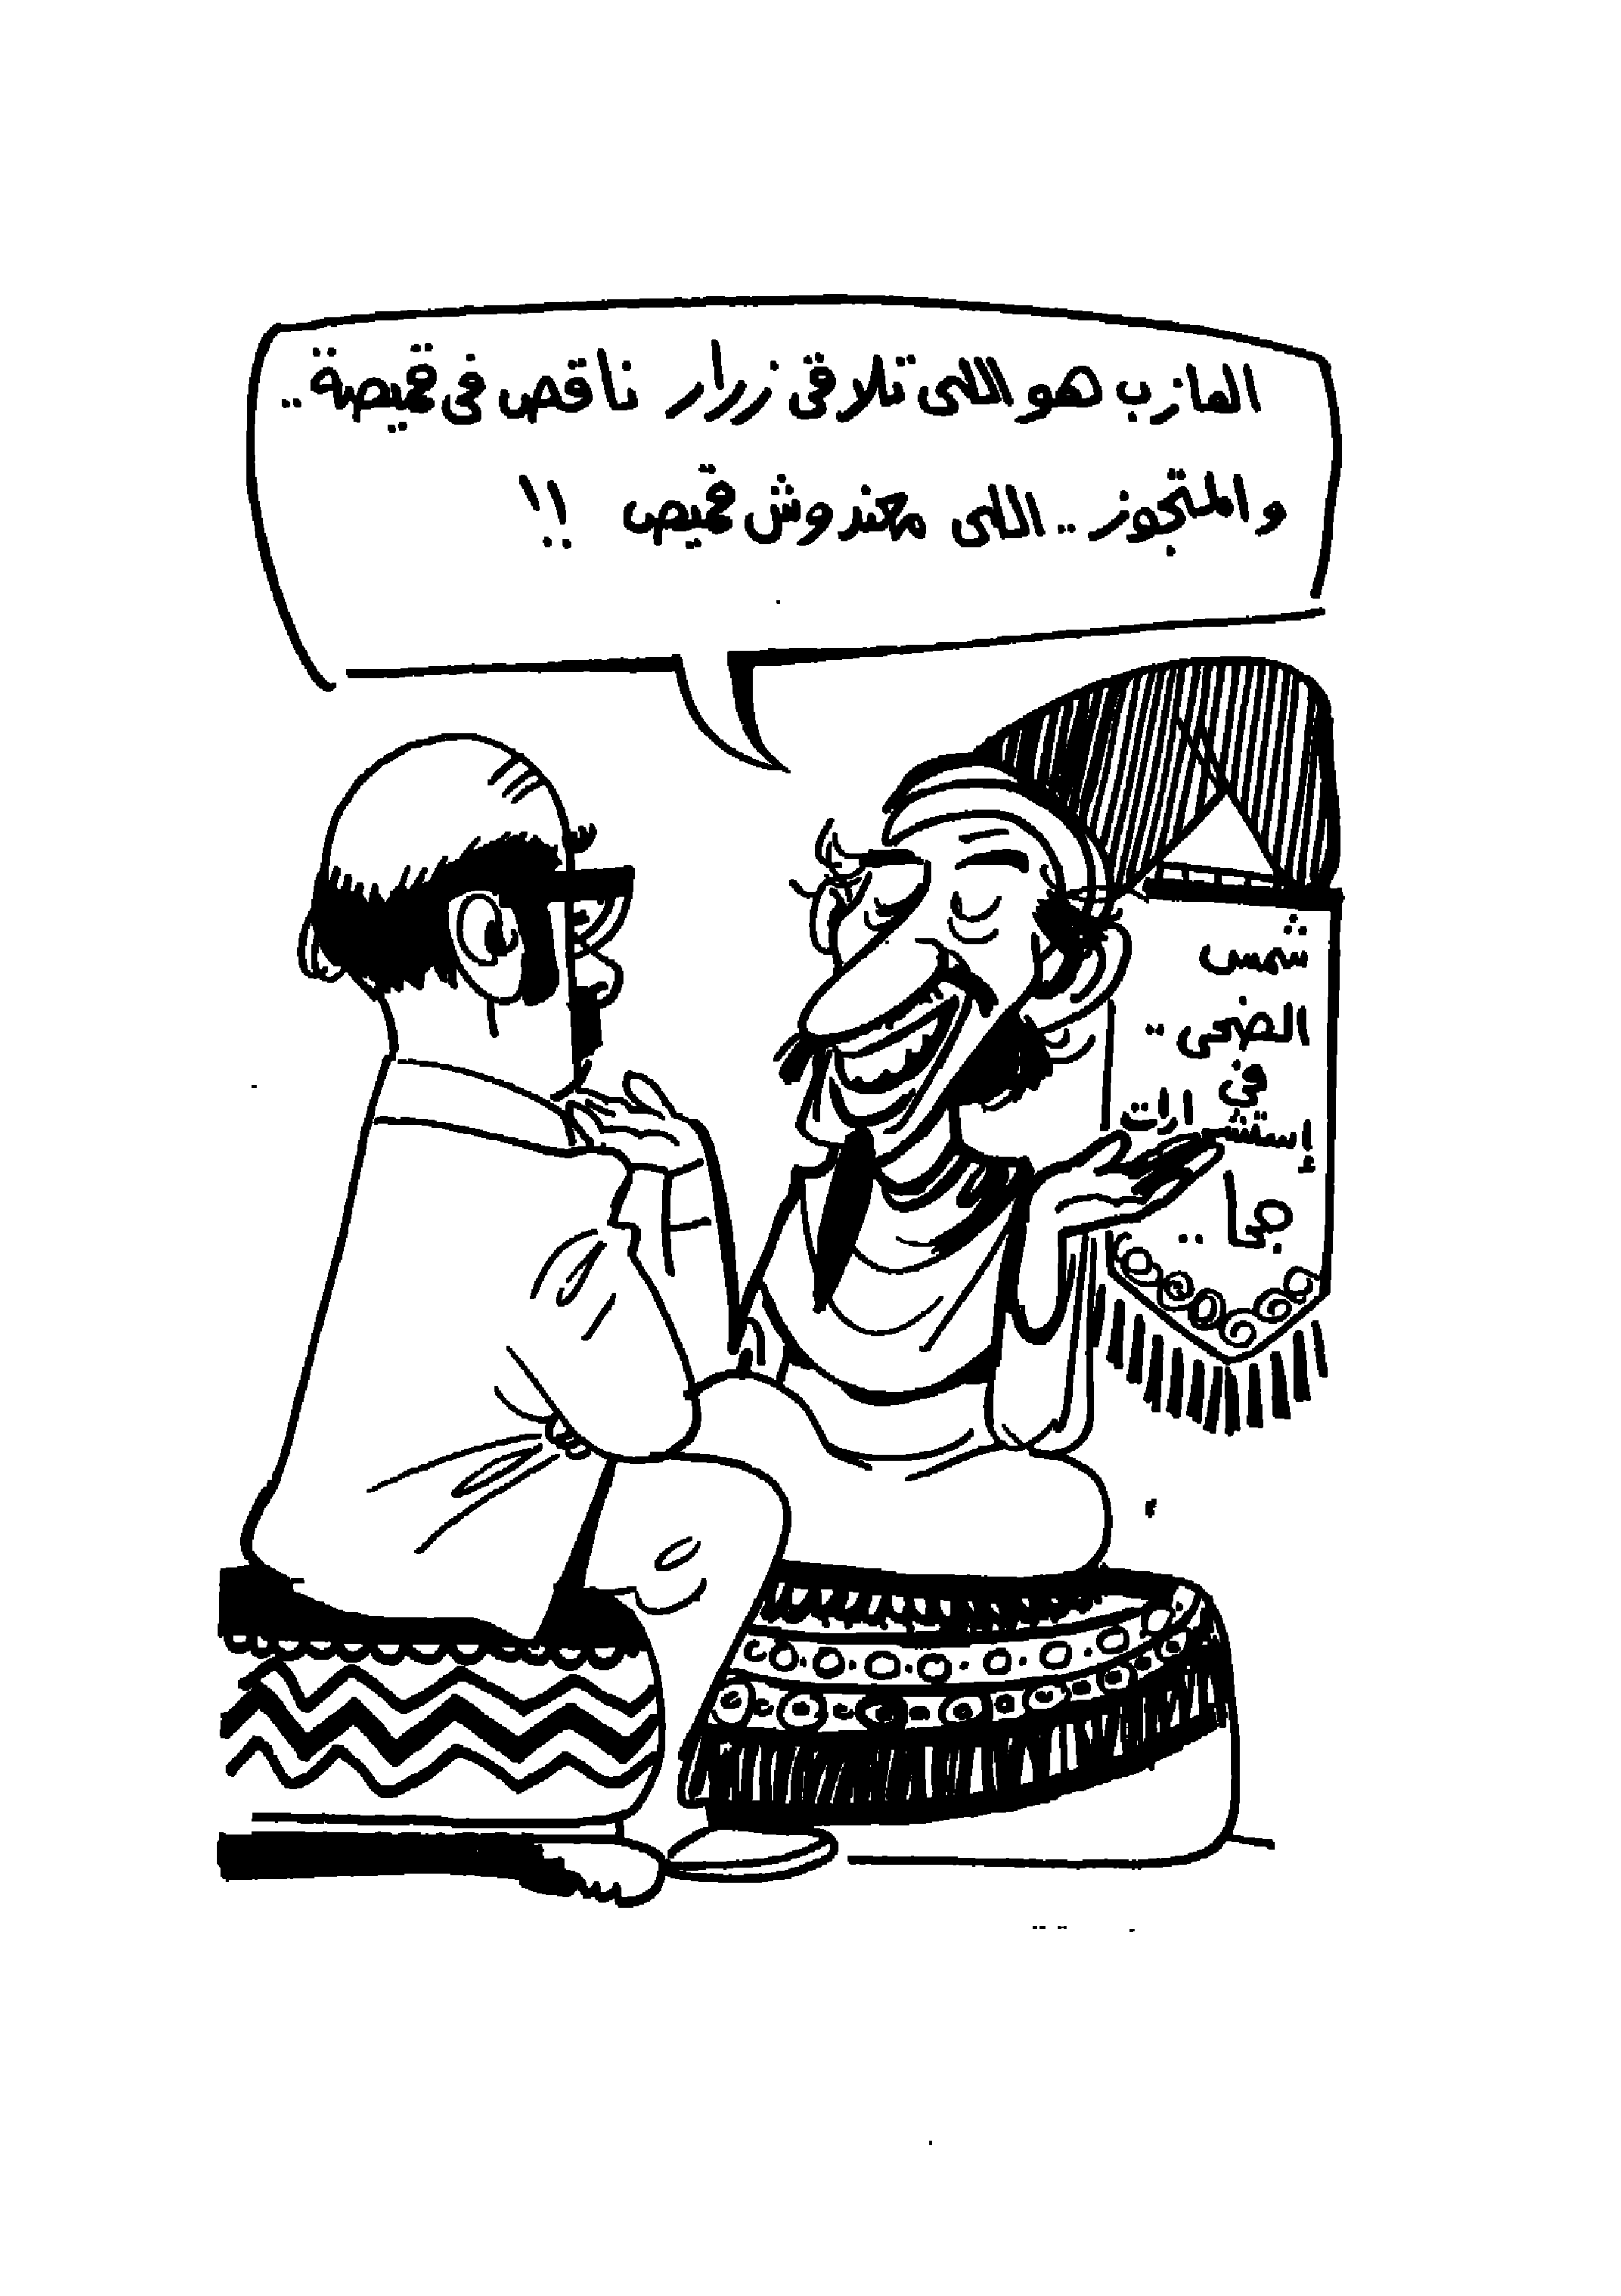 العازب هو اللى تلاقى زرار ناقص فى قميصة..
والمتجوز.. اللى معندوش قميص !!
شمس
الضحى..
فى
إستشارات
جحا..